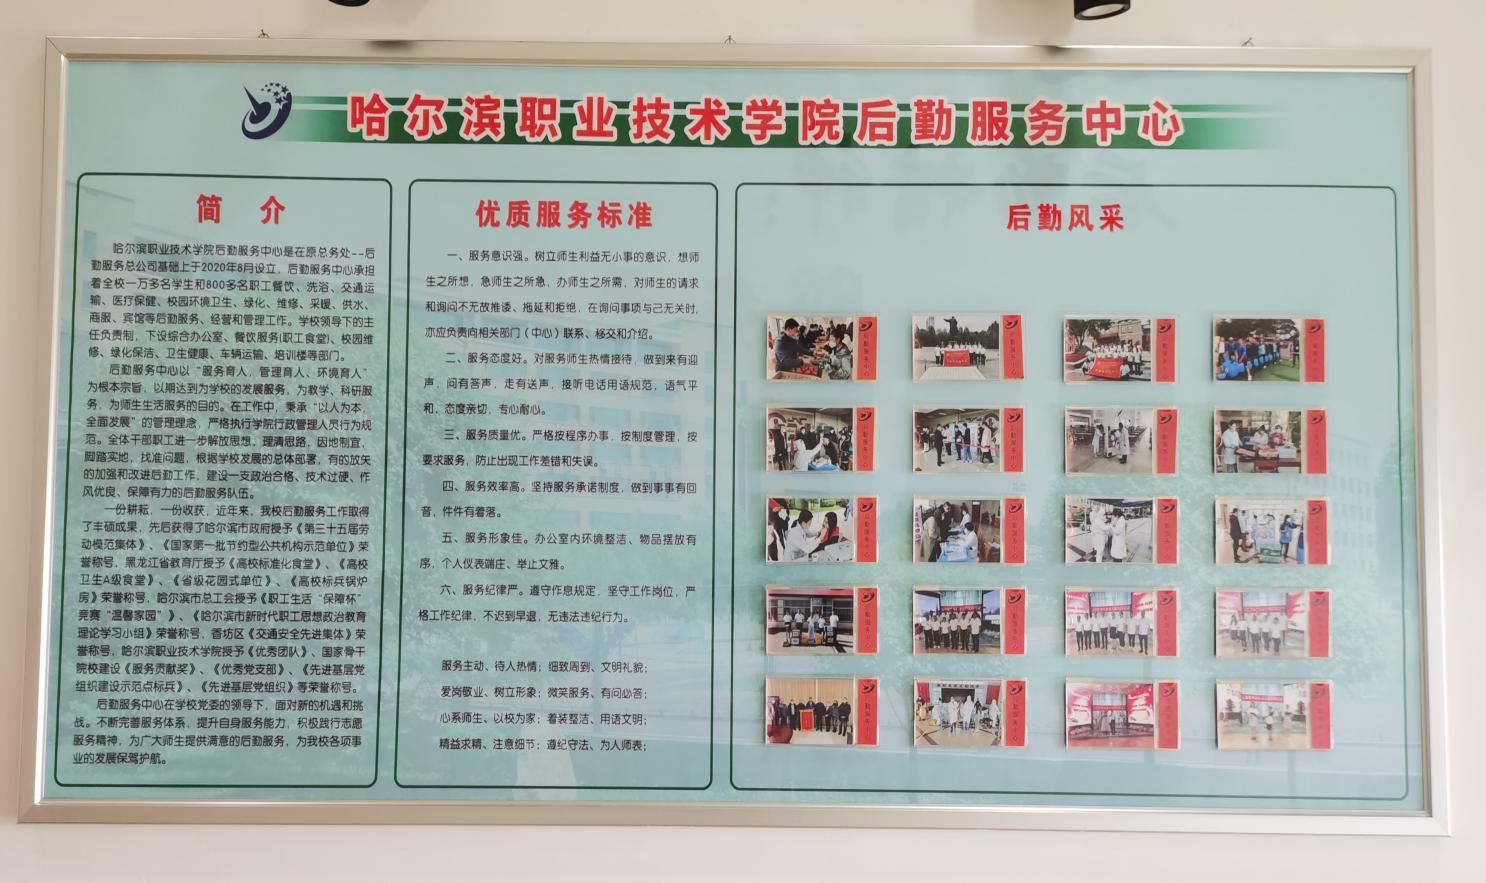 哈尔滨职业技术学院后勤服务中心
简 介
哈尔滨职业技术学院后勤服务中心是在原总务处--后
勤服务总公司基础上于2020年8月设立，后勤服务中心承担
着全校一万多名学生和800多名职工餐饮、洗浴、交通运
输、医疗保健、校园环境卫生、绿化、维修、采暖、供水、
商服、宾馆等后勤服务、经营和管理工作。学校领导下的主
任负责制，下设综合办公室、餐饮服务(职工食堂)、校园维
修、绿化保洁、卫生健康、车辆运输、培训楼等部门。
后勤服务中心以“服务育人，管理育人、环境育人”
为根本宗旨，以期达到为学校的发展服务，为教学、科研服
务，为师生生活服务的目的。在工作中，秉承“以人为本，
全面发展”的管理理念，严格执行学院行政管理人员行为规
范。全体干部职工进一步解放思想，理清思路，因地制宜，
脚踏实地，找准问题，根据学校发展的总体部署，有的放矢
的加强和改进后勤工作，建设一支政治合格、技术过硬、作
风优良、保障有力的后勤服务队伍。
一份耕耘，一份收获，近年来，我校后勤服务工作取得
了丰硕成果，先后获得了哈尔滨市政府授予《第三十五届劳
动模范集体》、《国家第一批节约型公共机构示范单位》荣
誉称号，黑龙江省教育厅授予《高校标准化食堂》、《高校
卫生A级食堂》、《省级花园式单位》、《高校标兵锅炉
房》荣誉称号，哈尔滨市总工会授予《职工生活“保障杯”
竞赛“温馨家园”》、《哈尔滨市新时代职工思想政治教育
理论学习小组》荣誉称号，香坊区《交通安全先进集体》荣
誉称号，哈尔滨职业技术学院授予《优秀团队》、国家骨干
院校建设《服务贡献奖》、《优秀党支部》、《先进基层党
组织建设示范点标兵》、《先进基层党组织》等荣誉称号。
后勤服务中心在学校党委的领导下，面对新的机遇和挑
战。不断完善服务体系，提升自身服务能力，积极践行志愿
服务精神，为广大师生提供满意的后勤服务，为我校各项事
业的发展保驾护航。
优质服务标准
一、服务意识强。树立师生利益无小事的意识，想师
生之所想，急师生之所急，办师生之所需，对师生的请求
和询问不无故推诿、拖延和拒绝，在询问事项与己无关时,
亦应负责向相关部门（中心）联系、移交和介绍。
二、服务态度好。对服务师生热情接待，做到来有迎
声，问有答声，走有送声，接听电话用语规范，语气平
和、态度亲切，专心耐心。
三、服务质量优。严格按程序办事，按制度管理，按
要求服务，防止出现工作差错和失误。
四、服务效率高。坚持服务承诺制度，做到事事有回
音，件件有着落。
五、服务形象佳。办公室内环境整洁、物品摆放有
序，个人仪表端庄、举止文雅。
六、服务纪律严。遵守作息规定，坚守工作岗位，严
格工作纪律，不迟到早退，无违法违纪行为。
服务主动、待人热情；细致周到、文明礼貌；
爱岗敬业、树立形象；微笑服务、有问必答；
心系师生、以校为家；着装整洁、用语文明；
精益求精、注意细节；遵纪守法、为人师表；
后勤风采